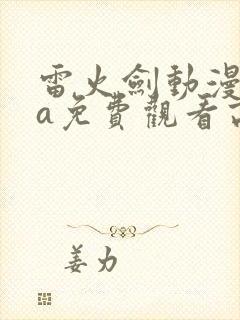 雷火劍動漫
a免費觀看高
姜力